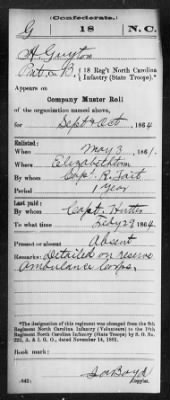 (Confederate.)
G | 18 | N.C.
H Guyton
Pvt Co B, 18 Reg't North Carolina
Infantry (State Troops).*
Appears on
Company Muster Roll
of the organization named above,
for Sept & Oct, 1864.
Enlisted:
When May 3, 1861.
Where Elizabethtown
By whom Capt. R. Tait
Period 1 Year
Last paid:
By whom Capt.
To what time Feby 29, 1864.
Present or absent Absent
Remarks: Detailed on reserve
Ambulance Corps.
*The designation of this regiment was changed from the 8th
Regiment North Carolina Infantry (Volunteers) to the 18th
Regiment North Carolina Infantry (State Troops) by S. O. No.
222, A. & I. G. O., dated November 14, 1861.
Book mark:
(642)
Copyist.